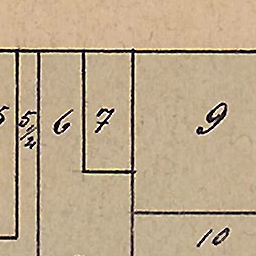 5 1/2 6 7 9
10